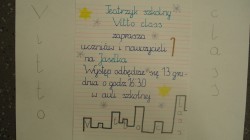 Teatrzyk szkolny
Vitto class
zaprasza
uczniów i nauczycieli
na Jasełka
Występ odbędzie się 13 gru-
dnia o godz 8:30
w auli szkolnej
Vitto
class